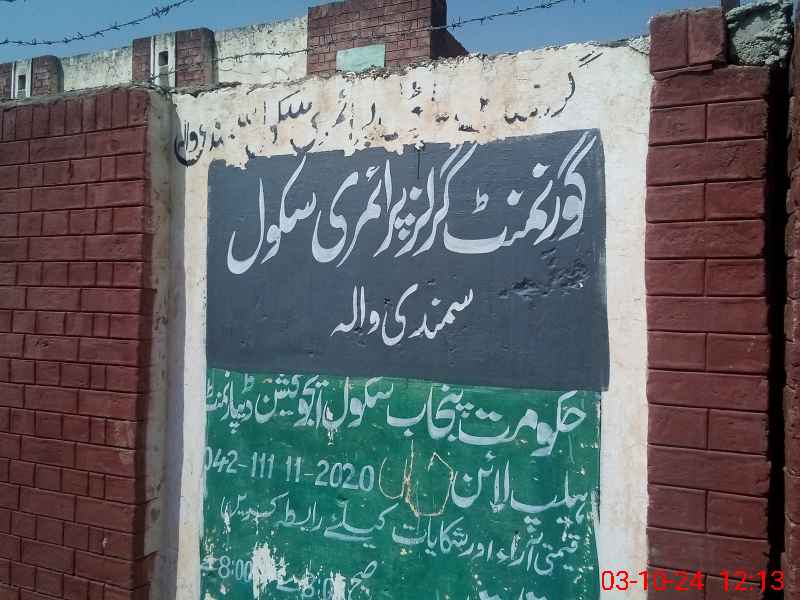 گورنمنٹ گرلز پرائمری سکول
سمندی والہ
حکومت پنجاب سکول ایجوکیشن ڈیپارٹمنٹ
ہیلپ لائن 042-111 11-2020
قیمتی آراء اور شکایات کیلئے رابطہ کریں
صبح 8:00 سے 8:00
03-10-24 12:13